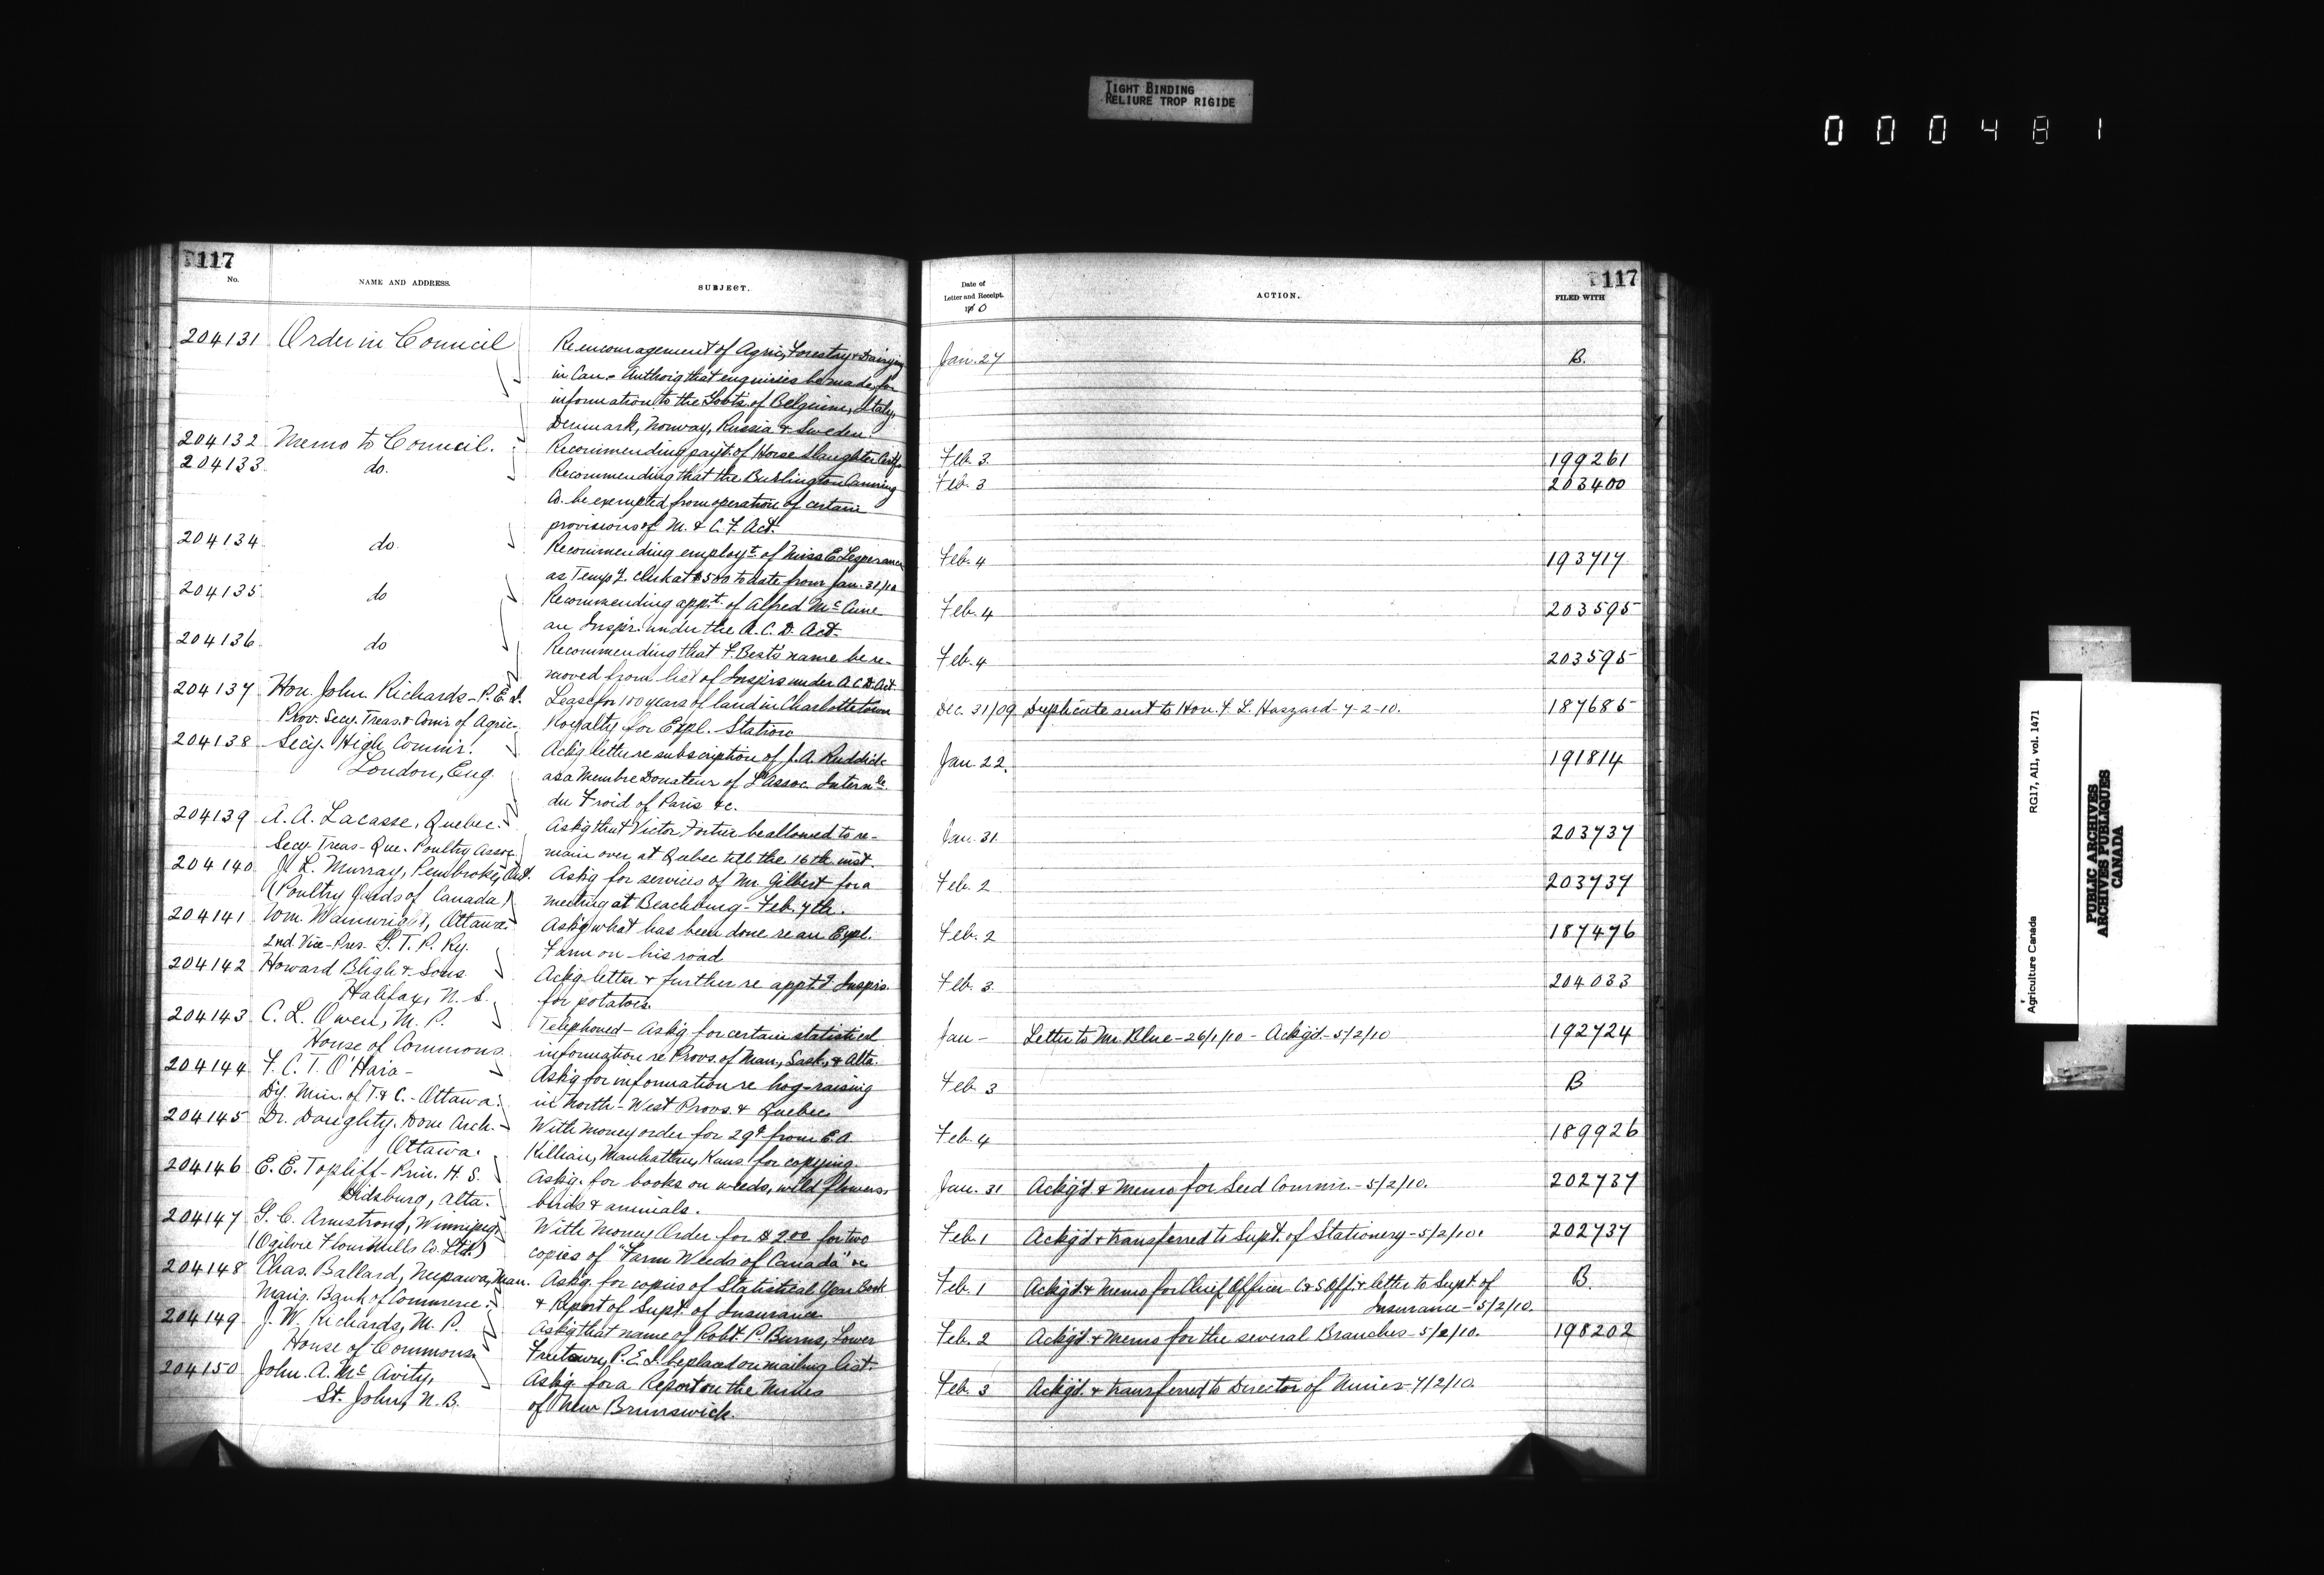 TIGHT BINDING
RELIURE TROP RIGIDE
000481
117
No.
NAME AND ADDRESS.
SUBJECT.
204131 Order in Council Re encouragement of Agric, Forestry & Dairying
in Can. - Authoig that enquiries be made for
information to the Govts. of Belgium, Italy,
Denmark, Norway, Russia & Sweden.
204132 Memo to Council. Recommending payt. of Horse Slaughter Certfs
204133 do. Recommending that the Burlington Canning
Co. be exempted from operation of certain
provisions of M. & C. F. Act.
204134 do Recommending employt. of Miss E. Lesperance
as Tempy. clerk at $500 to date from Jan. 31/10
204135 do Recommending appt. of Alfred McCune
an Inspr. under the A. C. D. Act.
204136 do Recommending that F. Best's name be re-
moved from list of Inspirs under A C D. Act
204137 Hon. John Richards - P. E. I. Lease for 100 years of land in Charlottetown
Prov. Secy. Treas. & Comr. of Agric. Royalty for Expl. Station
204138 Secy. High Commr. Ackg. letter re subscription of J. A. Ruddick
London, Eng. as a Membre Donateur of L'Assoc. Internle.
du Froid of Paris &c.
204139 A. A. Lacasse, Quebec. Askg that Victor Fortier be allowed to re-
Secy. Treas - Que. Poultry Assoc. main over at Quebec till the 16th inst.
204140 J. L. Murray, Pembroke, Ont. Askg for services of Mr. Gilbert for a
(Poultry Yards of Canada) meeting at Beachburg - Feb. 7th.
204141 Wm. Wainwright, Ottawa. Askg what has been done re an Expl.
2nd Vice-Pres. G. T. P. Ry. Farm on his road
204142 Howard Bligh & Sons Ackg letter & further re appt. of Insprs.
Halifax, N. S. for potatoes.
204143 C. L. Owen, M. P. Telephoned - Askg for certain statistical
House of Commons information re Provs. of Man., Sask., & Alta.
204144 F. C. T. O'Hara - Askg for information re hog-raising
Dy. Min. of T. & C. - Ottawa. in North-West Provs. & Quebec
204145 Dr. Doughty. Dom Arch. - With money order for 29¢ from E. A.
Ottawa. Killian, Manhattan, Kans. for copying.
204146 E. E. Topliff - Prin. H. S. Askg. for books on weeds, wild flowers,
Didsburg, Alta. birds & animals.
204147 G. C. Armstrong, Winnipeg, With Money Order for $2.00 for two
(Ogilvie Flour Mills Co. Ltd.) copies of "Farm Weeds of Canada" &c
204148 Chas. Ballard, Neepawa, Man. Askg. for copies of Statistical Year Book
Mang. Bank of Commerce. & Report of Supt. of Insurance
204149 J. W. Richards, M. P. Askg that name of Robt. P. Burns, Lower
House of Commons. Freetown, P. E. I. be placed on mailing list.
204150 John A. McAvity, Askg. for a Report on the Mines
St. John, N. B. of New Brunswick.
117
Date of
Letter and Receipt.
1910
ACTION.
FILED WITH
Jan. 27 B.
Feb. 3. 199261
Feb. 3 203400
Feb. 4 193717
Feb. 4 203595
Feb. 4 203595
Dec. 31/09 Duplicate sent to Hon. F. L. Haszard - 7-2-10. 187685
Jan. 22. 191814
Jan. 31. 203737
Feb. 2 203737
Feb. 2 187476
Feb. 3. 204033
Jan - Letter to Mr. Blue - 26/1/10 - Ackg'd. - 5/2/10 192724
Feb. 3 B
Feb. 4 189926
Jan. 31 Ackg'd. & Memo for Seed Commr. - 5/2/10. 202737
Feb. 1 Ackg'd & transferred to Supt. of Stationery - 5/2/10. 202737
Feb. 1 Ackg'd. & Memo for Chief Officer C & S Off. & letter to Supt. of B.
Insurance - 5/2/10.
Feb. 2 Ackg'd. & Memo for the several Branches - 5/2/10. 198202
Feb. 3 Ackg'd. & transferred to Director of Mines - 7/2/10.
Agriculture Canada RG17, AI1, vol. 1471
PUBLIC ARCHIVES
ARCHIVES PUBLIQUES
CANADA